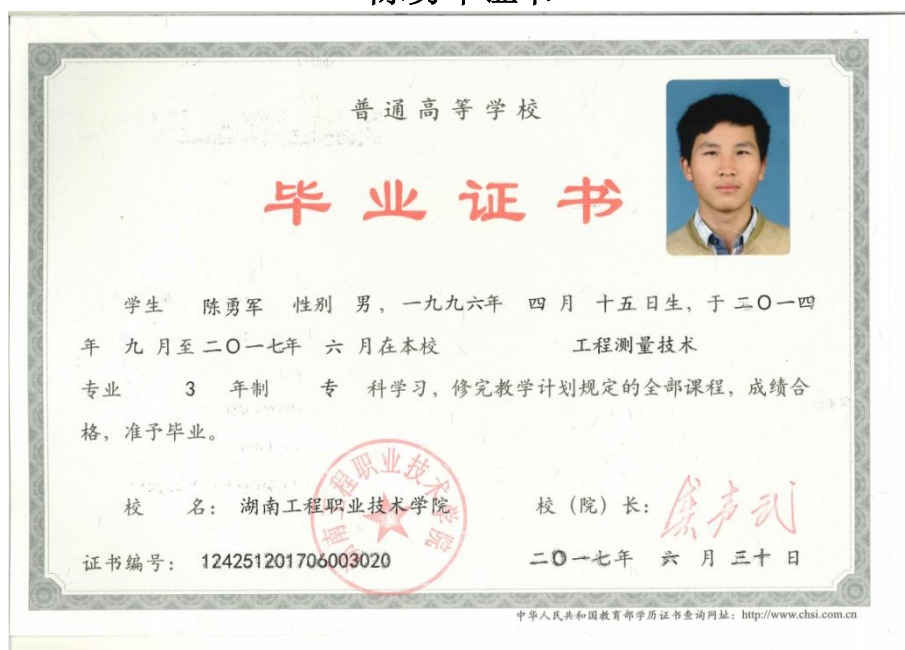 普通高等学校
毕业证书
学生 陈勇军 性别 男，一九九六年 四 月 十五日生，于二〇一四
年 九 月至二〇一七年 六 月在本校 工程测量技术
专业 3 年制 专 科学习，修完教学计划规定的全部课程，成绩合
格，准予毕业。
校 名：湖南工程职业技术学院
校（院）长：
证书编号：124251201706003020
二〇一七年 六 月 三十 日
湖南工程职业技术学院
中华人民共和国教育部学历证书查询网址：http://www.chsi.com.cn